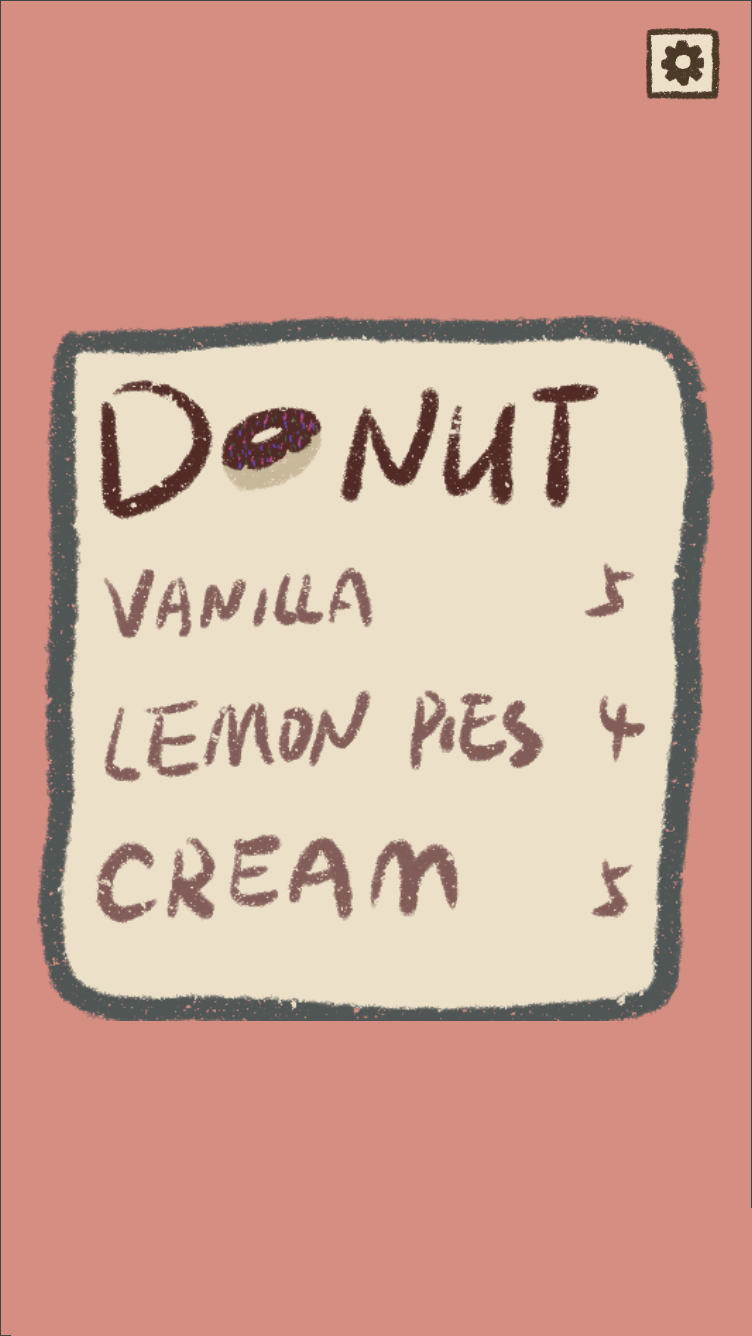 DONUT
VANILLA 5
LEMON PIES 4
CREAM 5